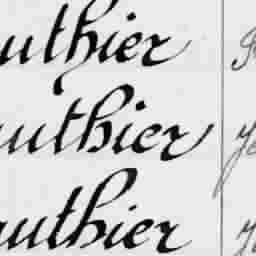 uthier
uthier
authier